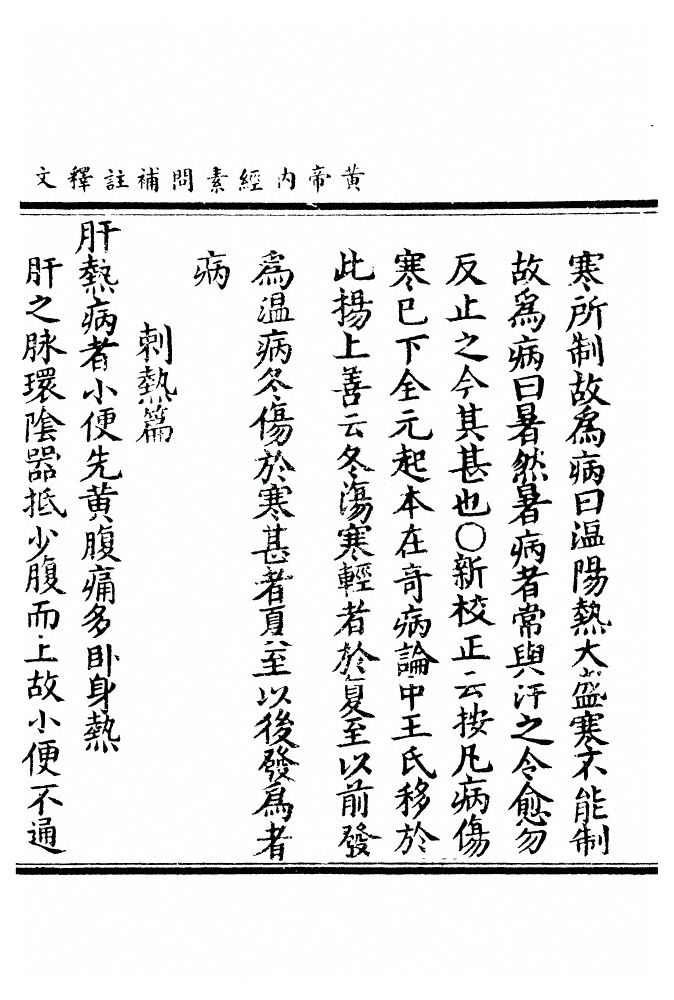 黃帝內經素問補註釋文
寒所制故為病曰温陽熱大盛寒不能制
故為病曰暑然暑病者當與汗之令愈勿
反止之令其甚也〇新校正云按凡病傷
寒已下全元起本在奇病論中王氏移於
此揚上善云冬傷寒輕者於夏至以前發
為温病冬傷於寒甚者夏至以後發為者
病
刺熱篇
肝熱病者小便先黃腹痛多卧身熱
肝之脉環陰器抵少腹而上故小便不通